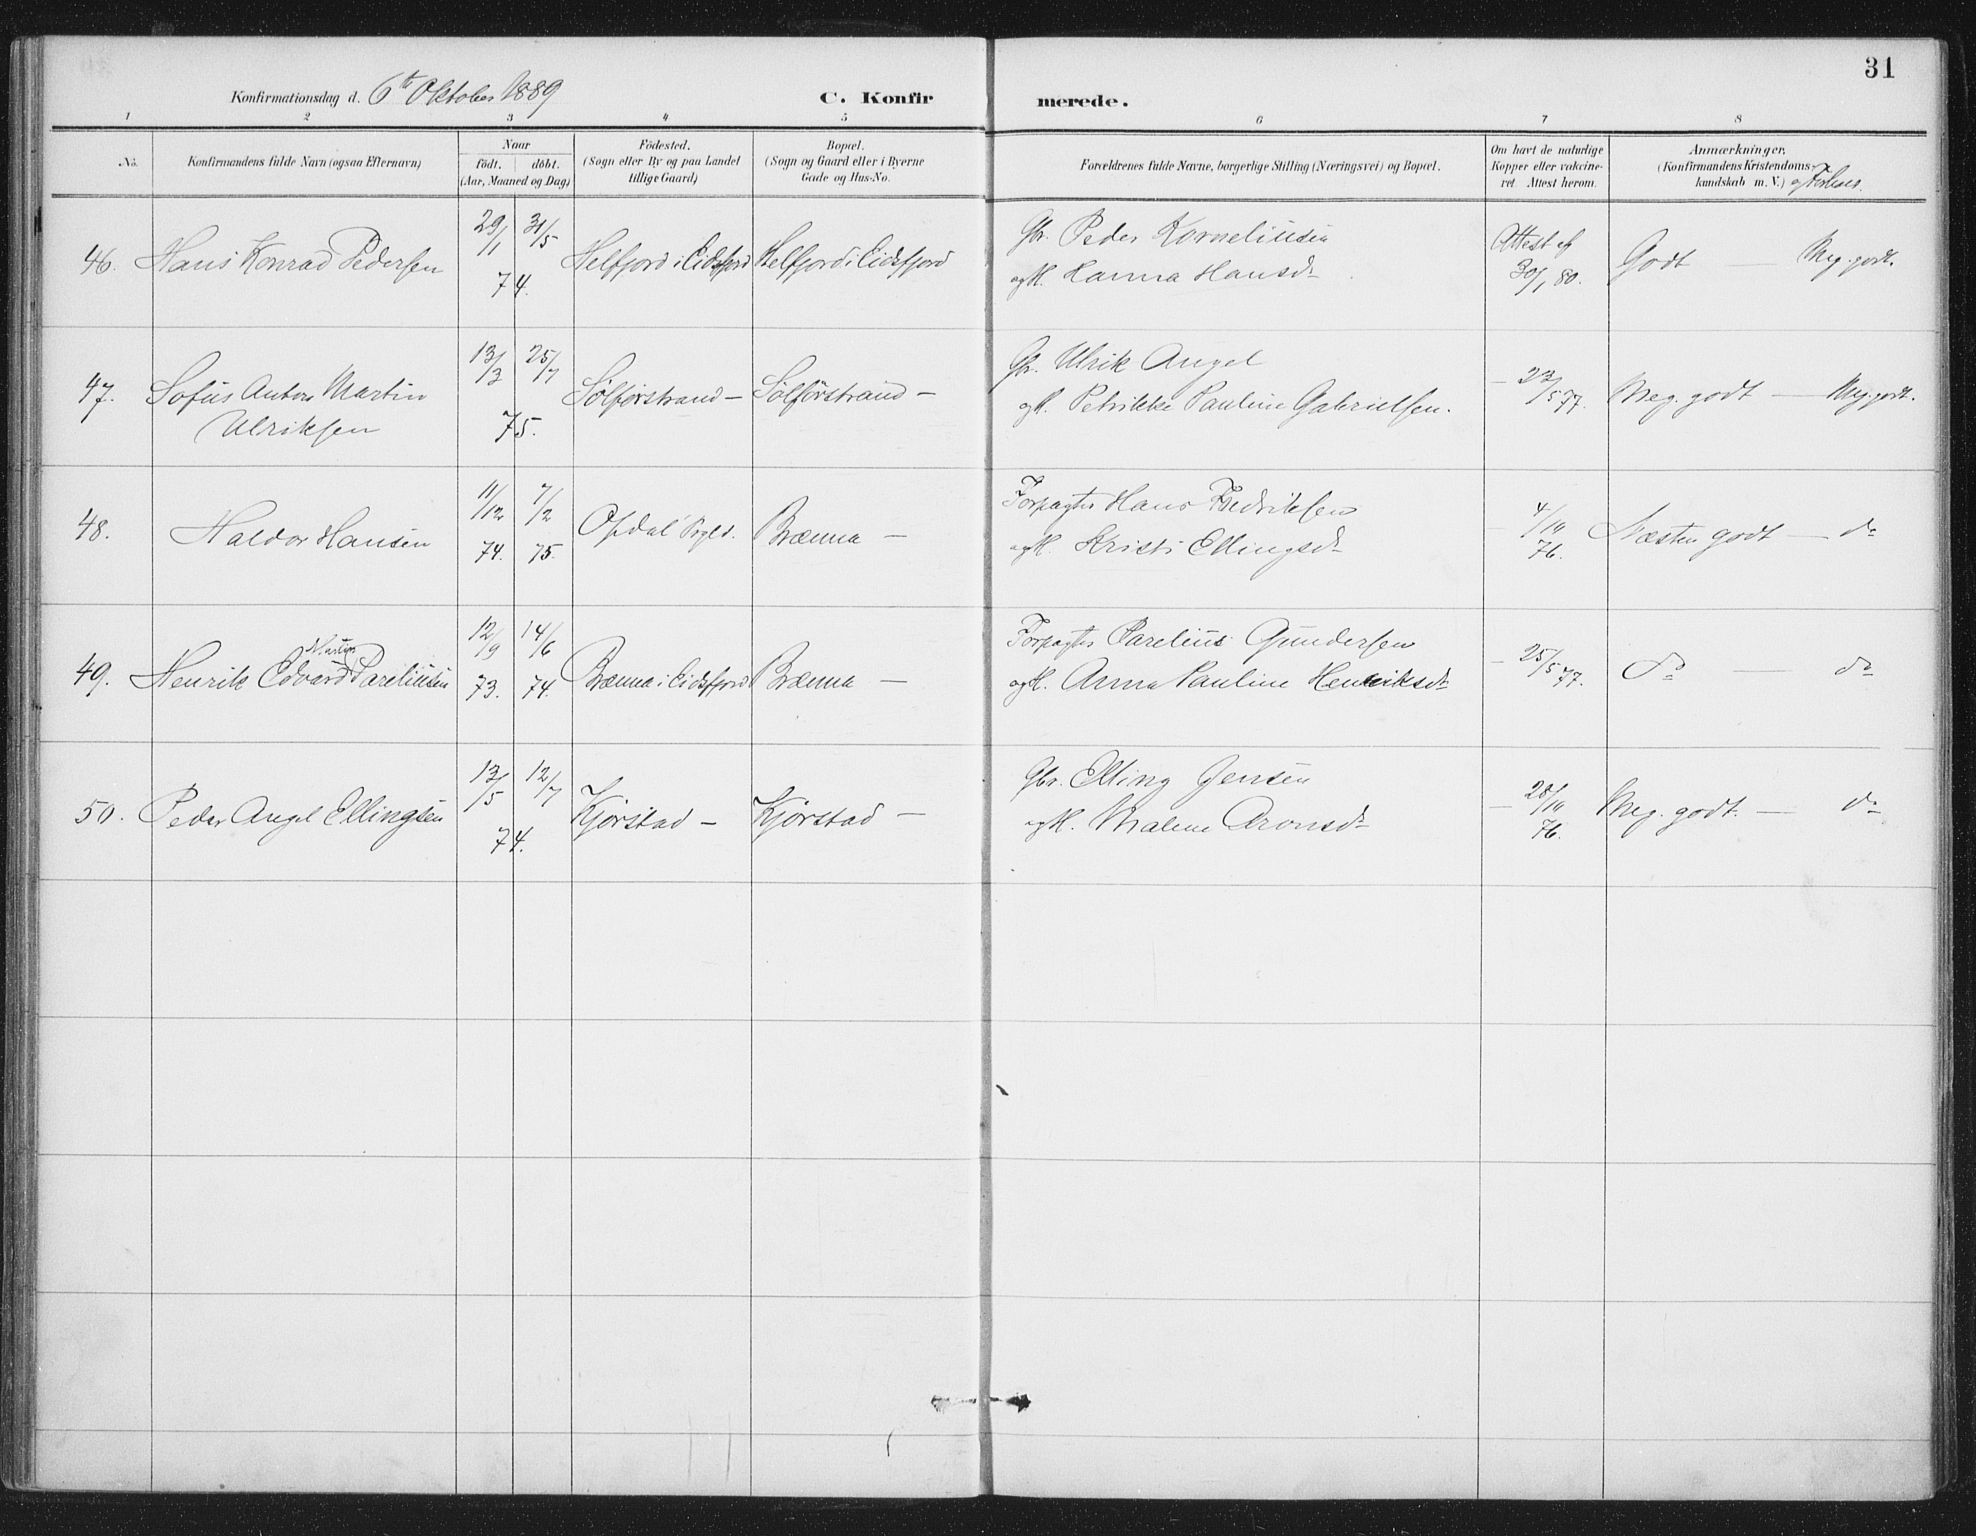 31
Konfirmationsdag d. 6te Oktober 1889 C. Konfirmerede.
1 2 3 4 5 6 7 8
No. Konfirmandens fulde Navn (ogsaa Efternavn) Naar födt. döbt. (Aar, Maaned og Dag) Födested. (Sogn eller By og paa Landet tillige Gaard) Bopæl. (Sogn og Gaard eller i Byerne Gade og Hus-No. Forældrenes fulde Navne, borgerlige Stilling (Næringsvei) og Bopæl. Om havt de naturlige Kopper eller vakcineret. Attest herom. Anmærkninger. (Konfirmandens Kristendomskundskab m. V.)
46. Hans Konrad Pedersen 29/1 31/5 74. Helfjord i Eidsfjord Helfjord i Eidsfjord Gbr. Peder Korneliusen
og H. Hanna Hansdr Attest af 30/1 80. Godt — Meg. godt.
47. Sofus Anton Martin Ulriksen 13/3 25/7 75. Sølferstrand — Sølførstrand — Gbr. Ulrik Angel
og H. Petrikke Pauline Gabrielsen. — 23/5 77. Meg. godt — Meg. godt.
48. Haldor Hansen 11/12 74. 7/2 75. Opdal Brænna — Forpagter Hans Fredriksen
og H. Kristi Ellingsdr — 4/10 76. Næsten godt — do
49. Henrik Edvard Martin Pareliusen 12/9 73. 14/6 74. Brænna i Eidsfjord Brænna — Forpagter Parelius Gundersen
og H. Anna Pauline Henriksdr — 25/5 77. do — do
50. Peder Angel Ellingsen 13/5 12/7 74. Kjørstad — Kjørstad — Gbr. Elling Jensen
og H. Malene Aronsdr — 28/10 76. Meg. godt. — do